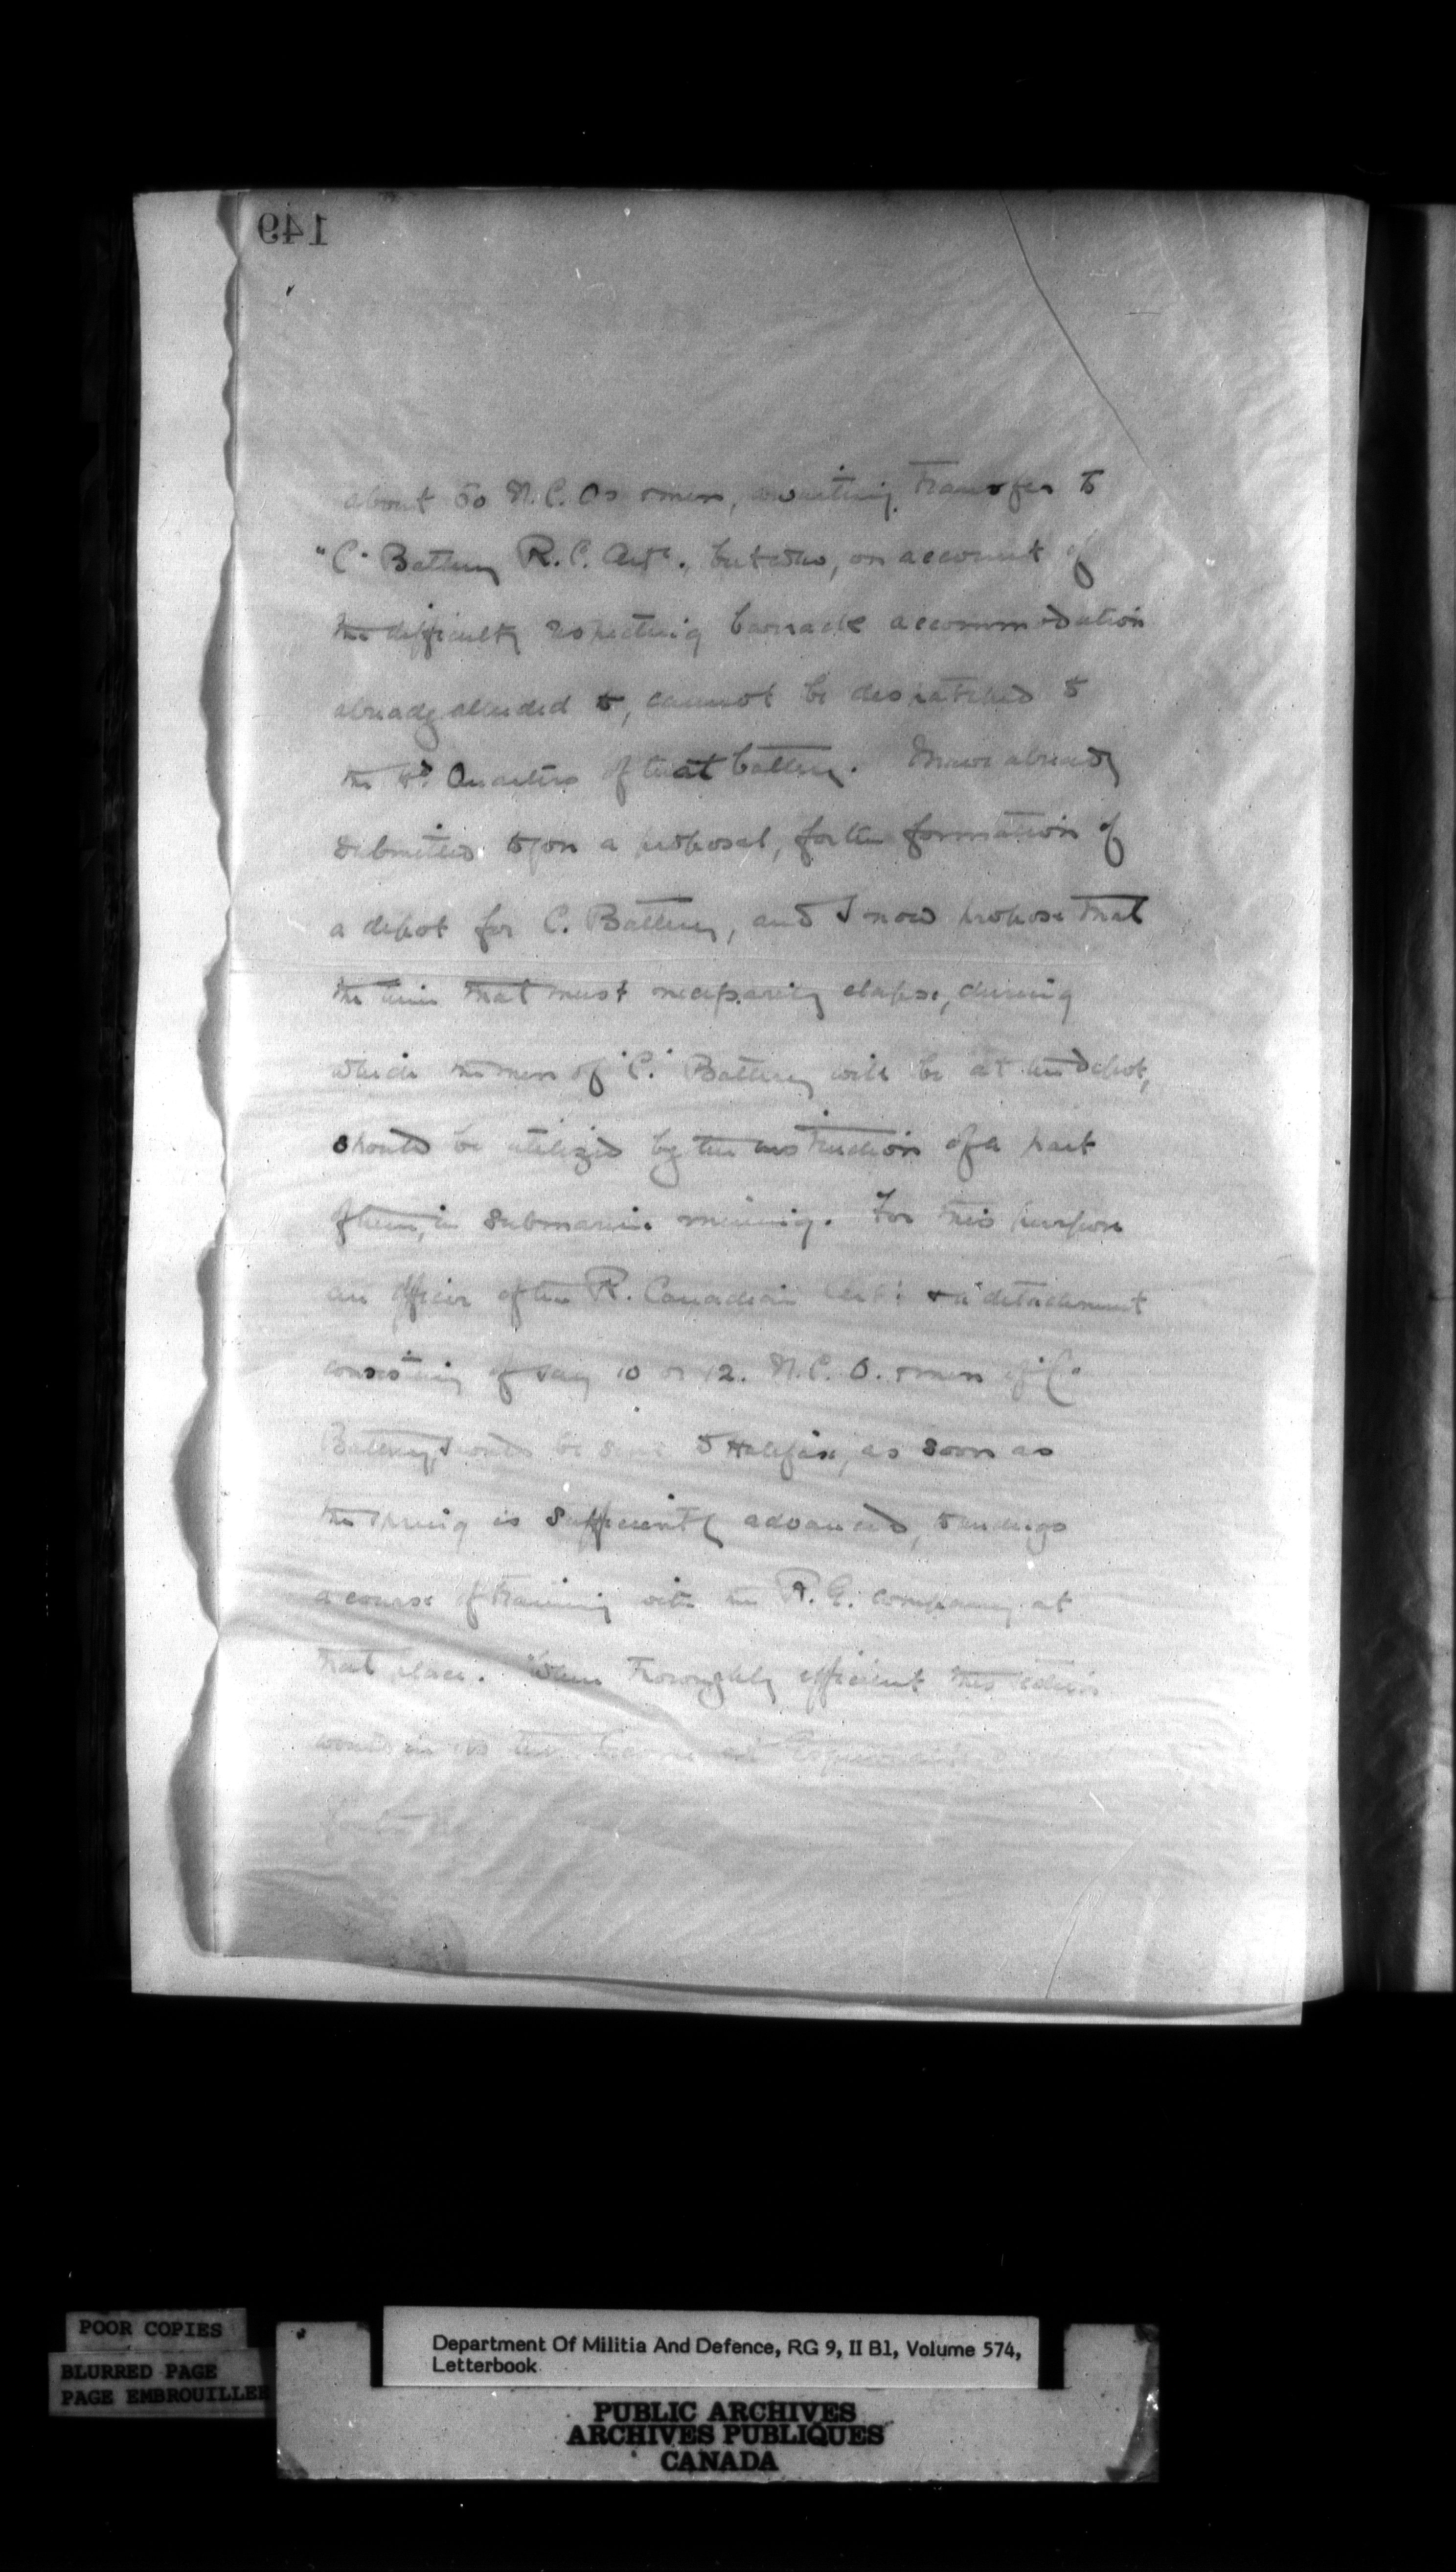 149
about 50 N.C.Os & men, awaiting transfer to
"C" Battery R.C. Arty., but who, on account of
the difficulty respecting barrack accommodation
already alluded to, cannot be despatched to
the Hd Quarters of that battery. I have already
submitted to you a proposal, for the formation of
a depot for C. Battery, and I now propose that
the time that must necessarily elapse, during
which the men of "C" Battery will be at the depot,
should be utilized by the instruction of a part
of them, in submarine mining. For this purpose
an officer of the R. Canadian Arty & a detachment
consisting of say 10 or 12. N.C.O. & men of "C"
Battery, should be sent to Halifax, as soon as
the spring is sufficiently advanced, to undergo
a course of training with the R.E. company at
that place. When thoroughly efficient this
would in its turn at Esquimalt
POOR COPIES
BLURRED PAGE
PAGE EMBROUILLEE
Department Of Militia And Defence, RG 9, II B1, Volume 574,
Letterbook
PUBLIC ARCHIVES
ARCHIVES PUBLIQUES
CANADA